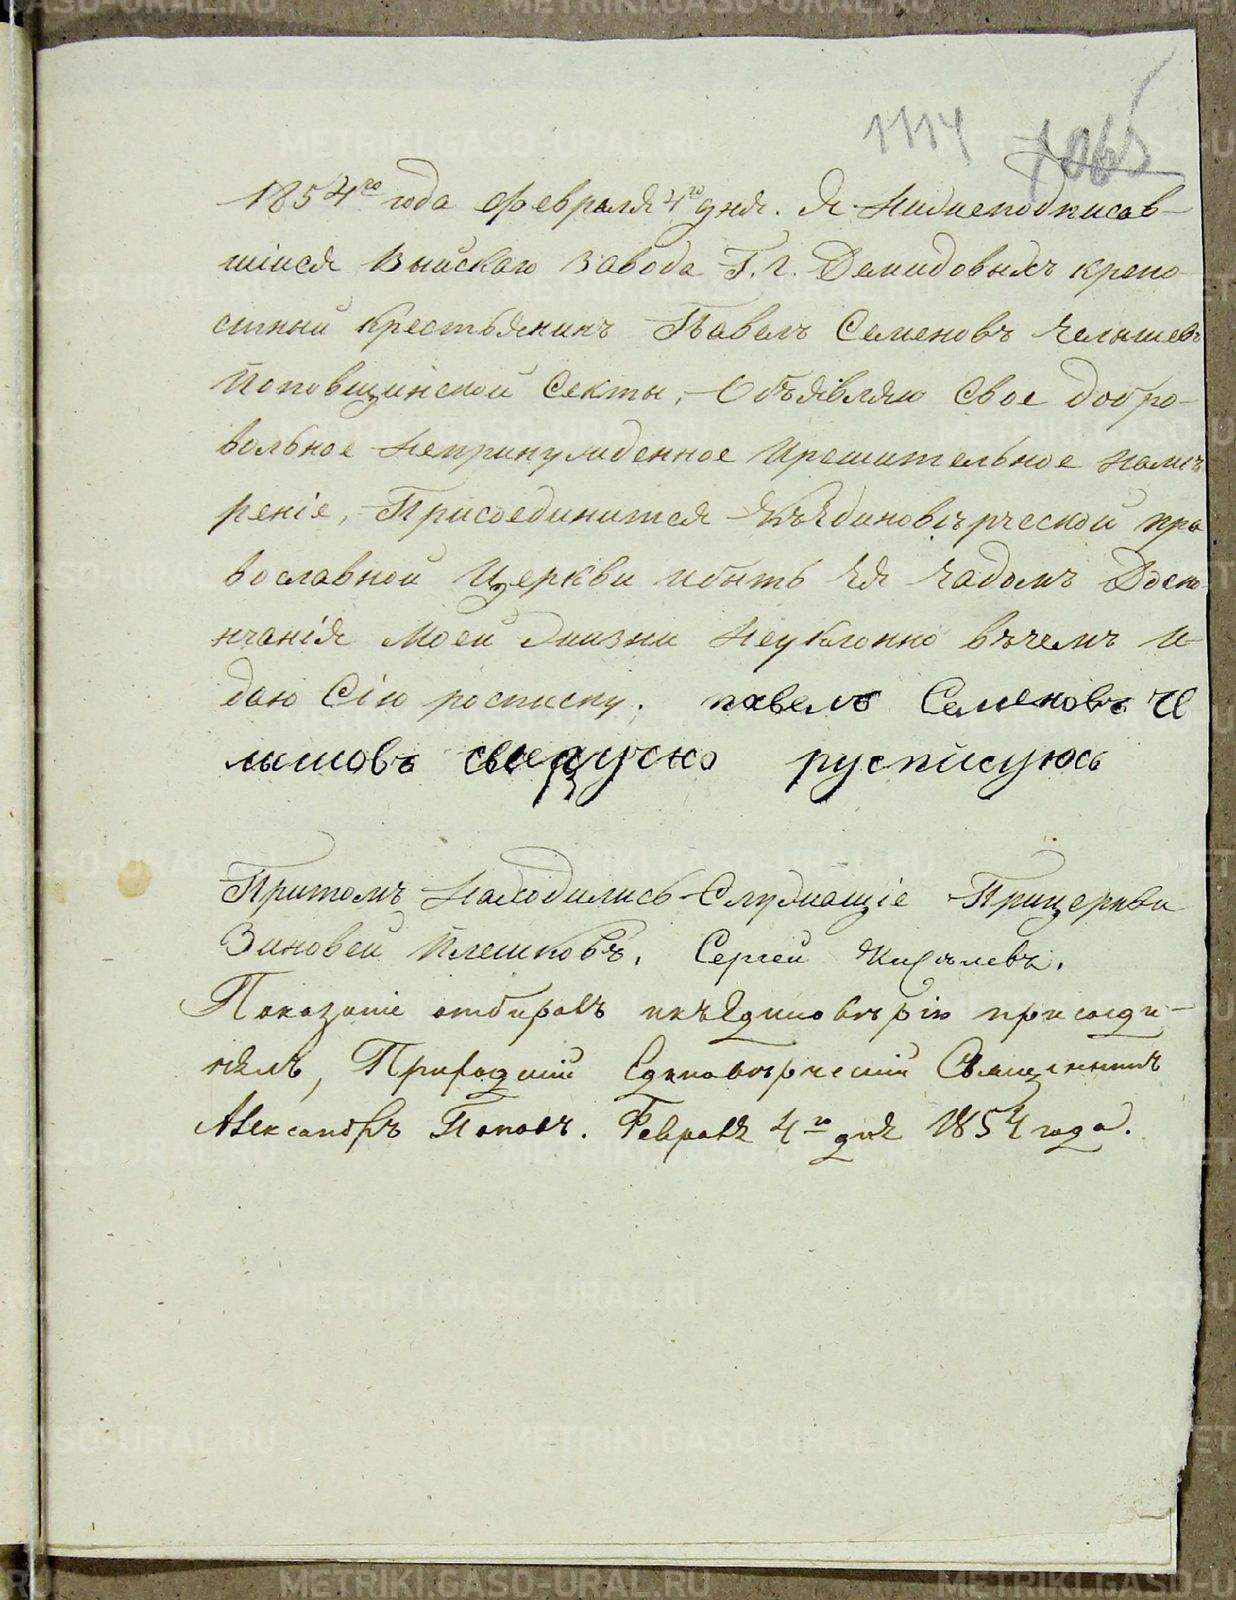 1114 1065
1854го года Февраля 4го дня. Я нижеподписав-
шiйся Выйскаго завода Г. Г. Демидовыхъ крепо-
стный крестьянинъ Павелъ Семеновъ Челышевъ
Поповщинской Секты, Объявляю свое добро-
вольное непринужденное ирешительное намѣ
ренiе, Присоединится къЕдиновѣрческой пра
вославной Церкви ибыть Ея Чадомъ Доско
нчанiя Моей Жизни Неуклонно въчемъ и
даю Сiю росписку. павелъ Семеновъ Че
лышовъ своеручно русписуюсь
Притомъ Находились Служащiе Прицеркви
Зиновей Плешковъ. Сергей
Показанiе отбиралъ икъЕдиновѣрiю присоеди-
нялъ, Приходскiй Единовѣрческiй Священникъ
Александръ Поповъ. Февраля 4го дня 1854 года.
METRIKI.GASO-URAL.RU